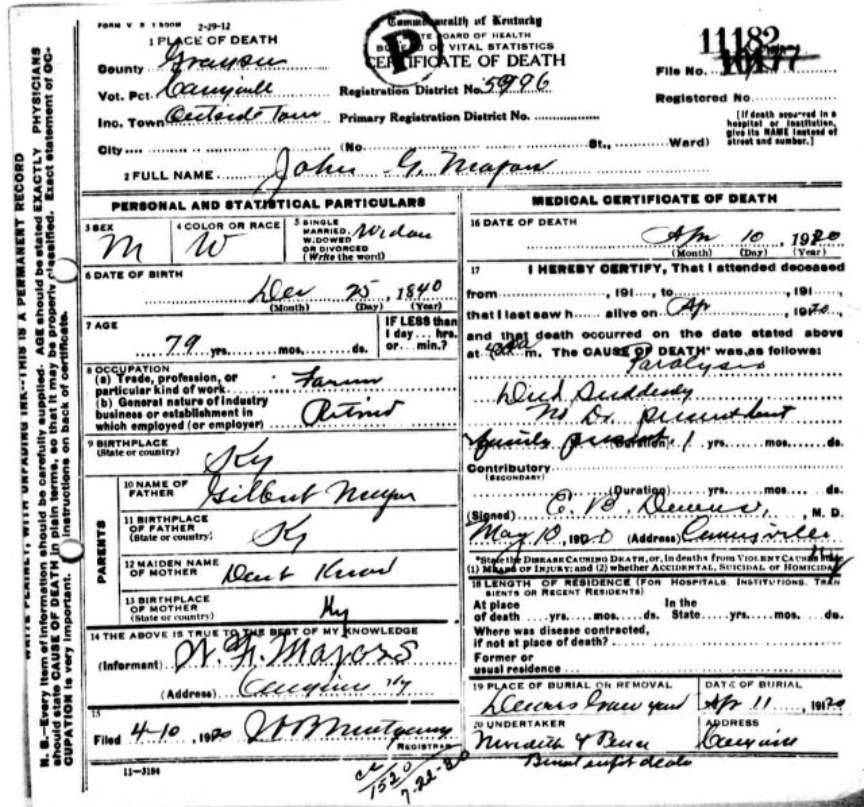 FORM V S 1 500M 2-29-12
Commonwealth of Kentucky
STATE BOARD OF HEALTH
BUREAU OF VITAL STATISTICS
CERTIFICATE OF DEATH
P
11182
File No.
Registered No.
[If death occurred in a hospital or institution, give its NAME instead of street and number.]
1 PLACE OF DEATH
County Grayson
Vot. Pct. Caneyville
Registration District No. 5996
Inc. Town Outside Town
Primary Registration District No.
City (No. St., Ward)
2 FULL NAME John G. Major
PERSONAL AND STATISTICAL PARTICULARS
3 SEX M
4 COLOR OR RACE W
5 SINGLE MARRIED, WIDOWED OR DIVORCED (Write the word) Widow
6 DATE OF BIRTH
Dec 25, 1840
(Month) (Day) (Year)
7 AGE
79 yrs. mos. ds.
IF LESS than 1 day... hrs. or... min.?
8 OCCUPATION
(a) Trade, profession, or particular kind of work Farmer
(b) General nature of industry business or establishment in which employed (or employer) Retired
9 BIRTHPLACE (State or country) Ky
PARENTS
10 NAME OF FATHER Gilbert Major
11 BIRTHPLACE OF FATHER (State or country) Ky
12 MAIDEN NAME OF MOTHER Dont Know
13 BIRTHPLACE OF MOTHER (State or country) Ky
14 THE ABOVE IS TRUE TO THE BEST OF MY KNOWLEDGE
(Informant) Majors
(Address) Caneyville Ky
15
Filed 4-10, 1920 Montgomery
REGISTRAR
11-3184
MEDICAL CERTIFICATE OF DEATH
16 DATE OF DEATH
Apr 10, 1920
(Month) (Day) (Year)
17 I HEREBY CERTIFY, That I attended deceased
from , 191 , to , 191 ,
that I last saw h alive on Ap , 1920,
and that death occurred on the date stated above
at m. The CAUSE OF DEATH* was as follows:
Paralysis
Died Suddenly
No Dr. present but
family present (Duration) 1 yrs. mos. ds.
Contributory
(SECONDARY)
(Duration) yrs. mos. ds.
(Signed) C. B. , M. D.
May 10, 1920 (Address)
*State the DISEASE CAUSING DEATH, or, in deaths from VIOLENT CAUSES
(1) MEANS OF INJURY; and (2) whether ACCIDENTAL, SUICIDAL OR HOMICIDAL
18 LENGTH OF RESIDENCE (FOR HOSPITALS, INSTITUTIONS, TRANSIENTS OR RECENT RESIDENTS)
At place of death yrs. mos. ds. In the State yrs. mos. ds.
Where was disease contracted, if not at place of death?
Former or usual residence
19 PLACE OF BURIAL OR REMOVAL
Grave yard
DATE OF BURIAL
Apr 11, 1920
20 UNDERTAKER
Meredith &
ADDRESS
Caneyville
7-22-20
WRITE PLAINLY, WITH UNFADING INK—THIS IS A PERMANENT RECORD
N. B.—Every item of information should be carefully supplied. AGE should be stated EXACTLY PHYSICIANS
should state CAUSE OF DEATH in plain terms, so that it may be properly classified. Exact statement of OC-
CUPATION is very important. instructions on back of certificate.